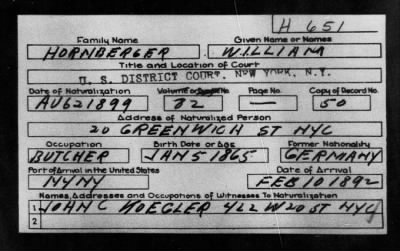 H 651
Family Name Given Name or Names
HORNBERGER. WILLIAM
Title and Location of Court
U. S. DISTRICT COURT. NEW YORK, N.Y.
Date of Naturalization Volume or Page No. Copy of Record No.
AUG 2 1899 82 — 50
Address of Naturalized Person
20 GREENWICH ST NYC
Occupation Birth Date or Age Former Nationality
BUTCHER JAN 5 1865 GERMANY
Port of Arrival in the United States Date of Arrival
NY NY FEB 10 1892
Names, Addresses and Occupations of Witnesses To Naturalization
1 JOHN C KOEGLER 422 W 20 ST NYC
2